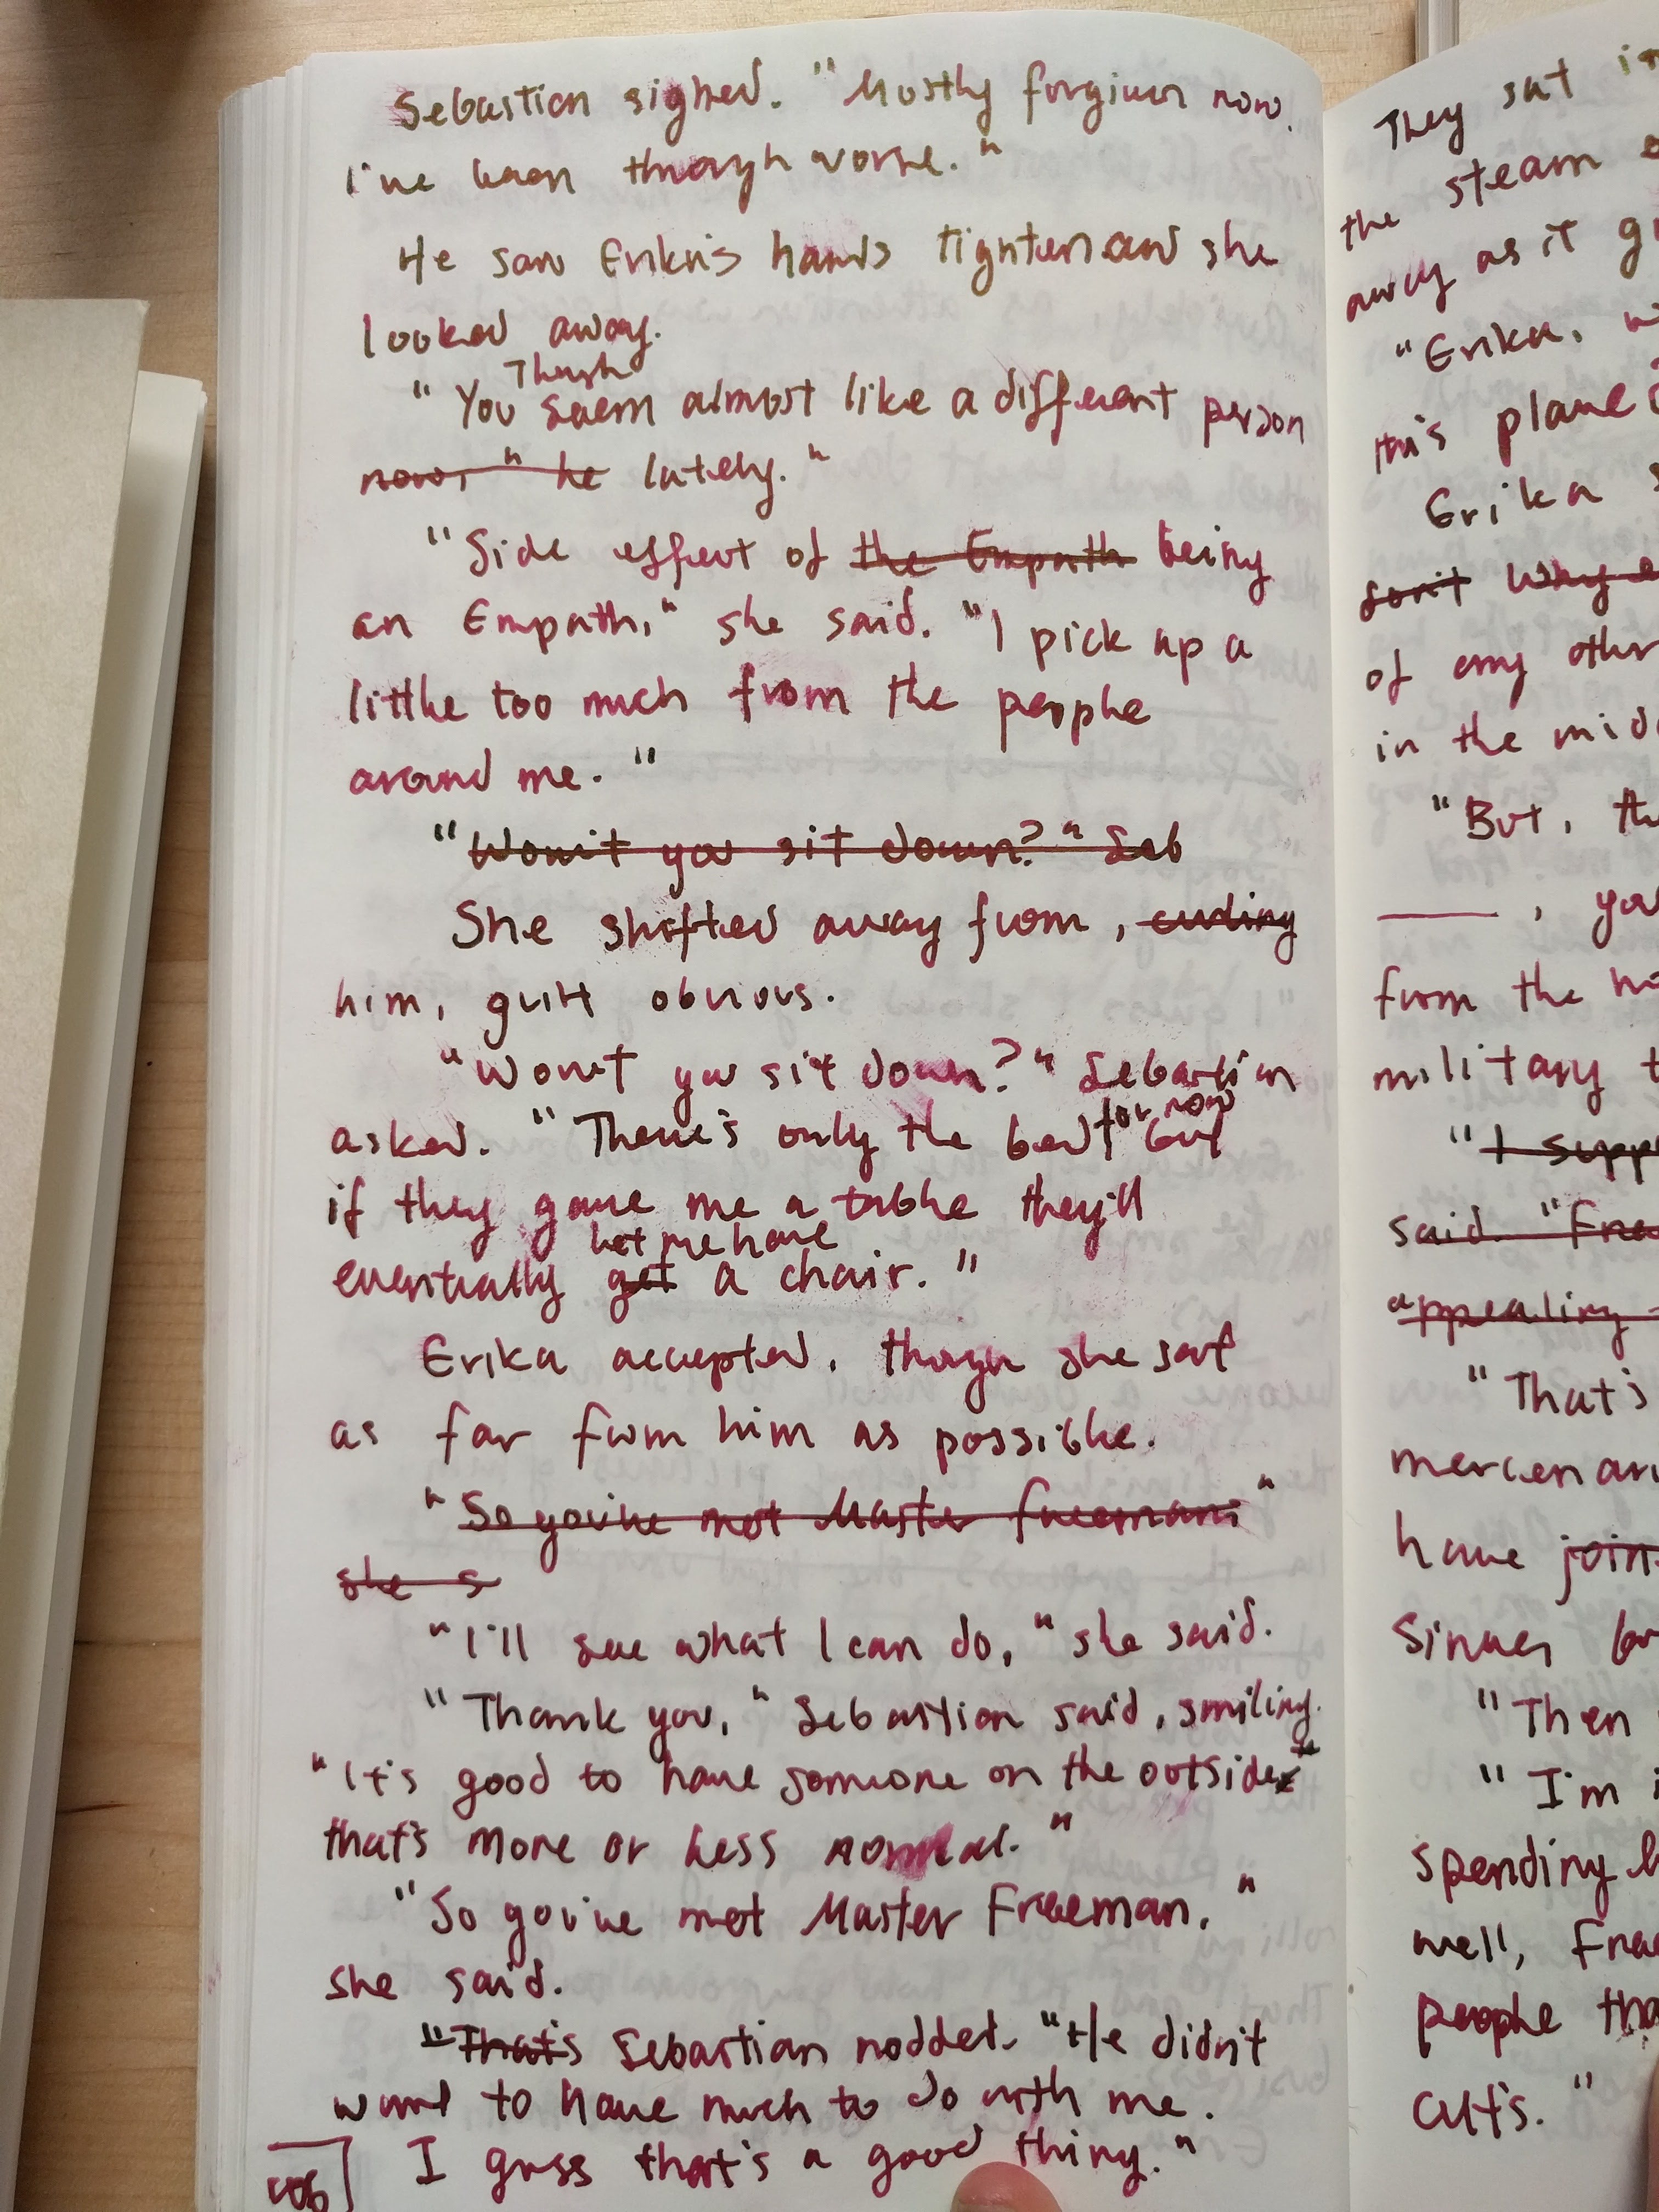 Sebastian sighed. "Mostly forgiven now.
I've been through worse."
He saw Erika's hands tighten and she
looked away.
Though
"You seem almost like a different person
now," he lately."
"Side effect of the Empath being
an Empath," she said. "I pick up a
little too much from the people
around me."
"Won't you sit down?" Seb
She shifted away from,
him, guilt obvious.
"Won't you sit down?" Sebastian
for now
asked. "There's only the bed but
if they gave me a table they'll
let me have
eventually get a chair."
Erika accepted, though she sat
as far from him as possible.
"So you've met Master Freeman"
she s
"I'll see what I can do," she said.
"Thank you," Sebastian said, smiling.
"It's good to have someone on the outside
that's more or less normal."
"So you've met Master Freeman,"
she said.
"That's Sebastian nodded. "He didn't
want to have much to do with me.
I guess that's a good thing."
106
They sat in
the steam
away as it
"Erika,
this plane
Erika
don't why
of any other
in the
"But,
, you
from the
military
"I
said. "
appealing
"That's
have
Since
"Then
"I'm
spending
well,
people
cults."